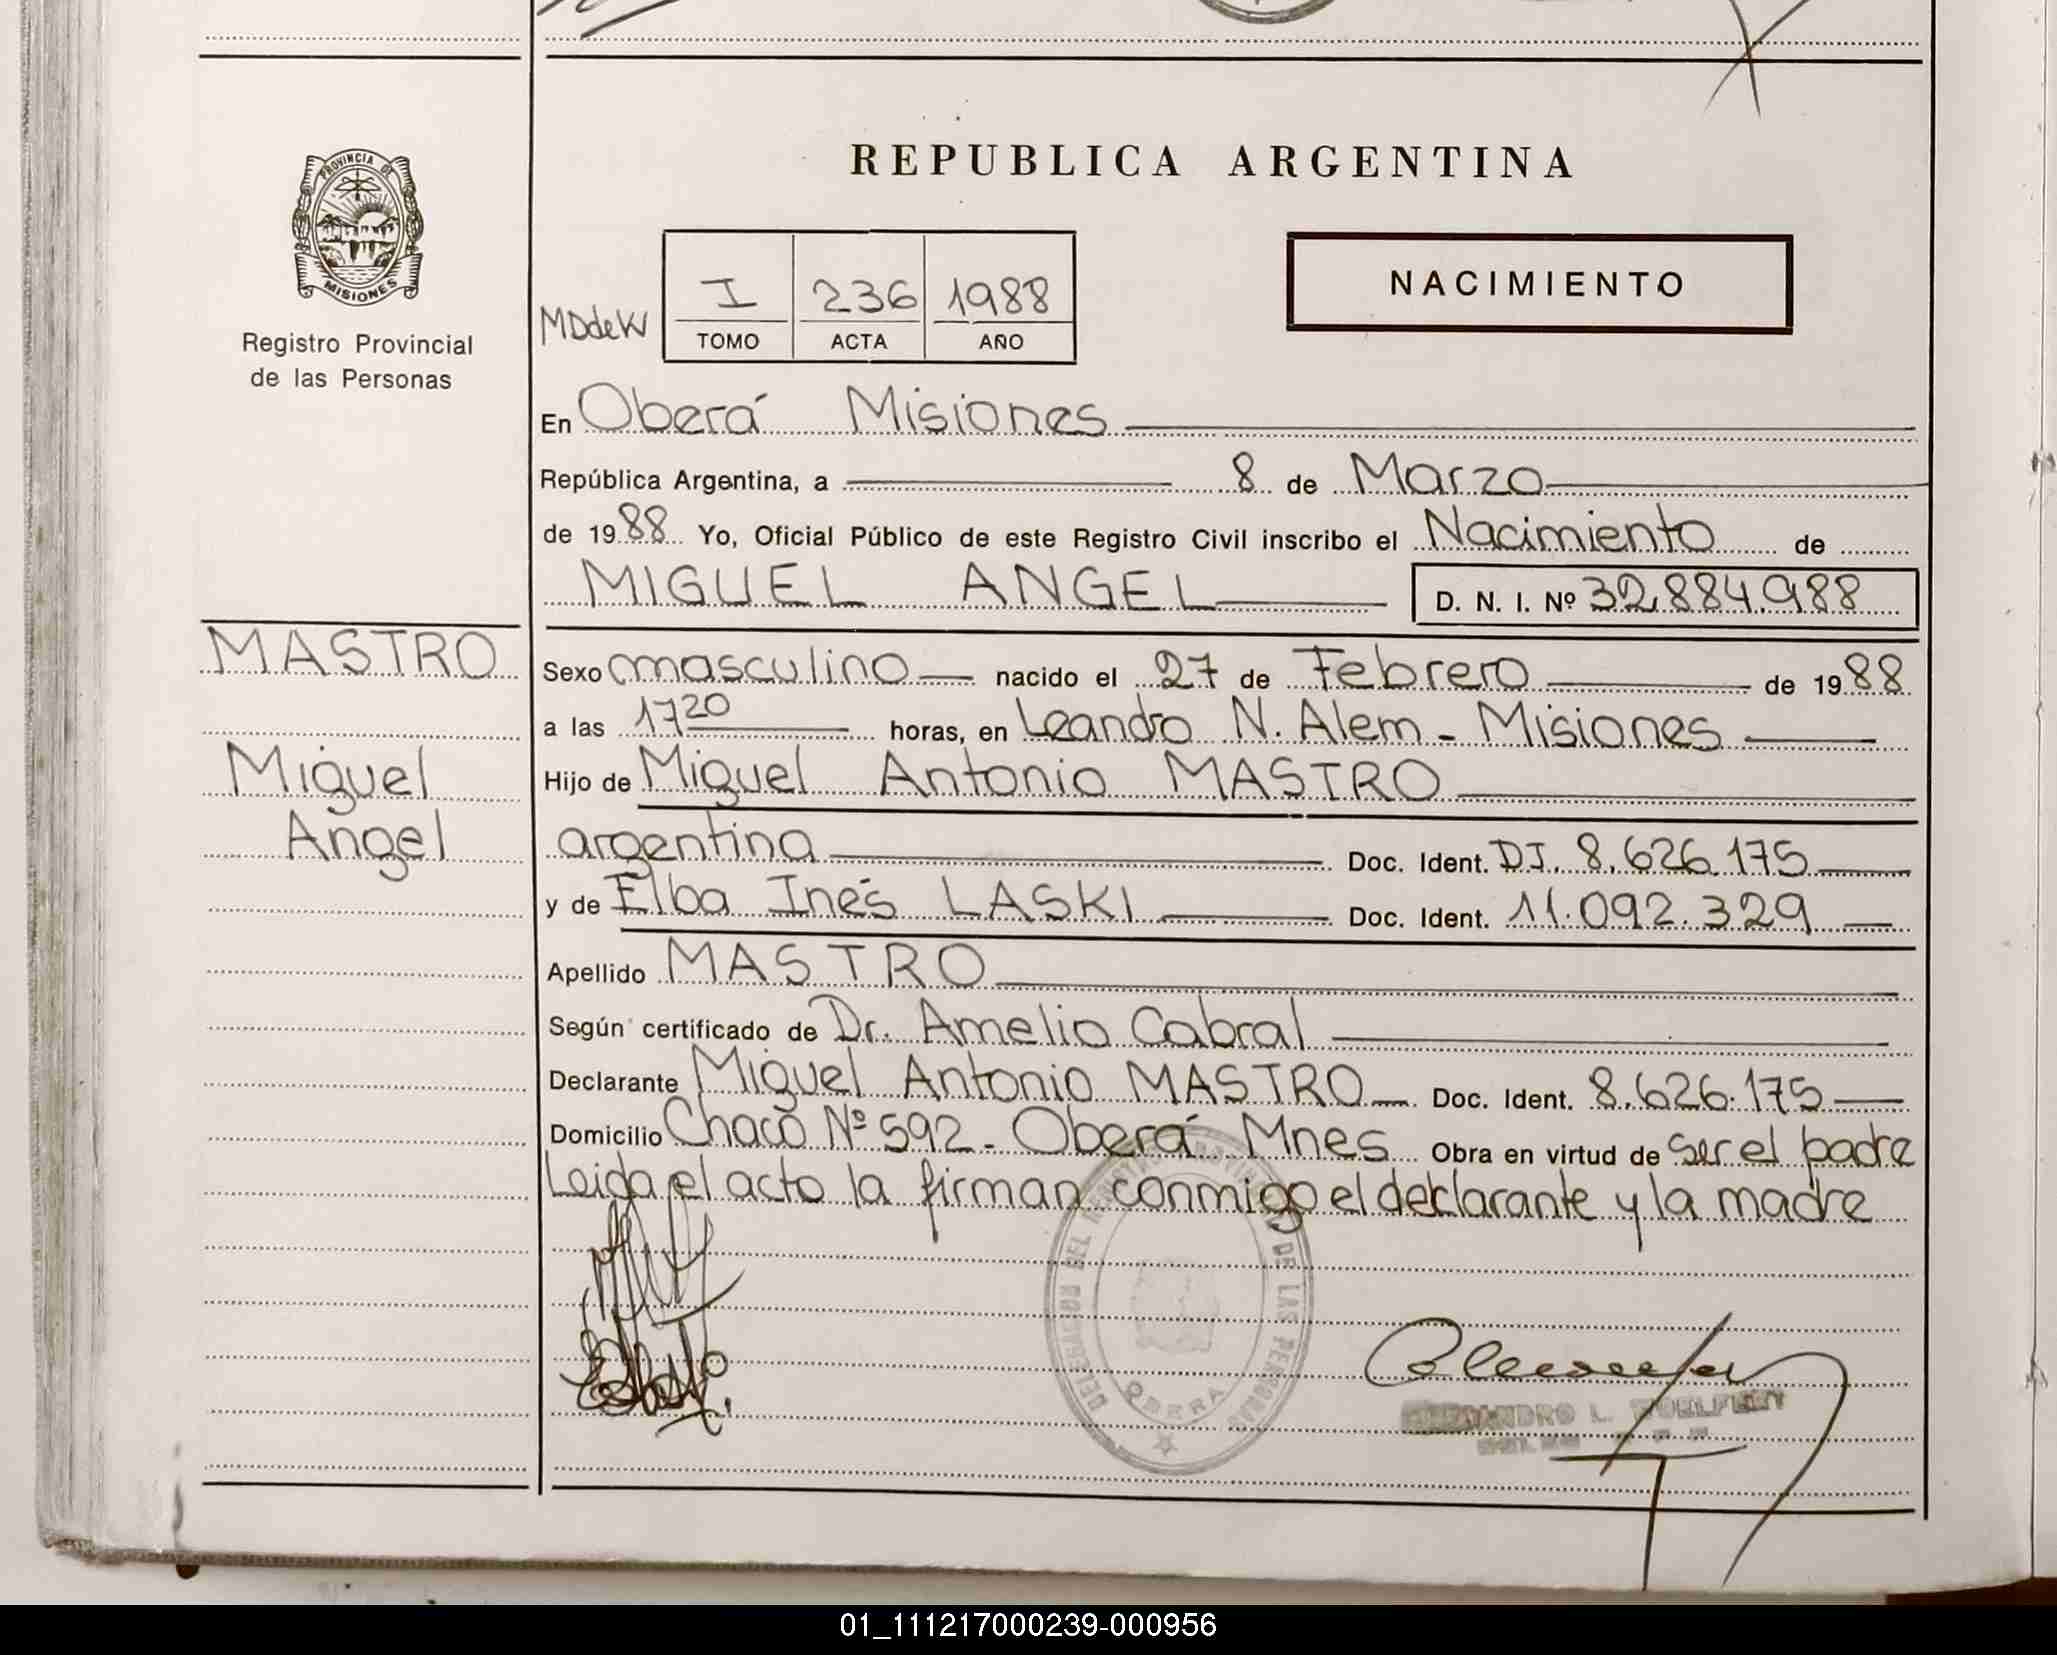 REPUBLICA ARGENTINA
PROVINCIA DE
MISIONES
Registro Provincial
de las Personas
MDdeW
I 236 1988
TOMO ACTA AÑO
NACIMIENTO
En Oberá Misiones
República Argentina, a 8 de Marzo
de 1988 Yo, Oficial Público de este Registro Civil inscribo el Nacimiento de
MIGUEL ANGEL D. N. I. Nº 32.884.988
MASTRO
Miguel
Angel
Sexo masculino nacido el 27 de Febrero de 1988
a las 17 20 horas, en Leandro N. Alem - Misiones
Hijo de Miguel Antonio MASTRO
argentina Doc. Ident. D.I. 8.626.175
y de Elba Inés LASKI Doc. Ident. 11.092.329
Apellido MASTRO
Según certificado de Dr. Amelio Cabral
Declarante Miguel Antonio MASTRO Doc. Ident. 8.626.175
Domicilio Chaco Nº 592 - Oberá Mnes Obra en virtud de ser el padre
Leida el acto la firman conmigo el declarante y la madre
DELEGACION DEL REGISTRO PROVINCIAL DE LAS PERSONAS
OBERA
01_111217000239-000956